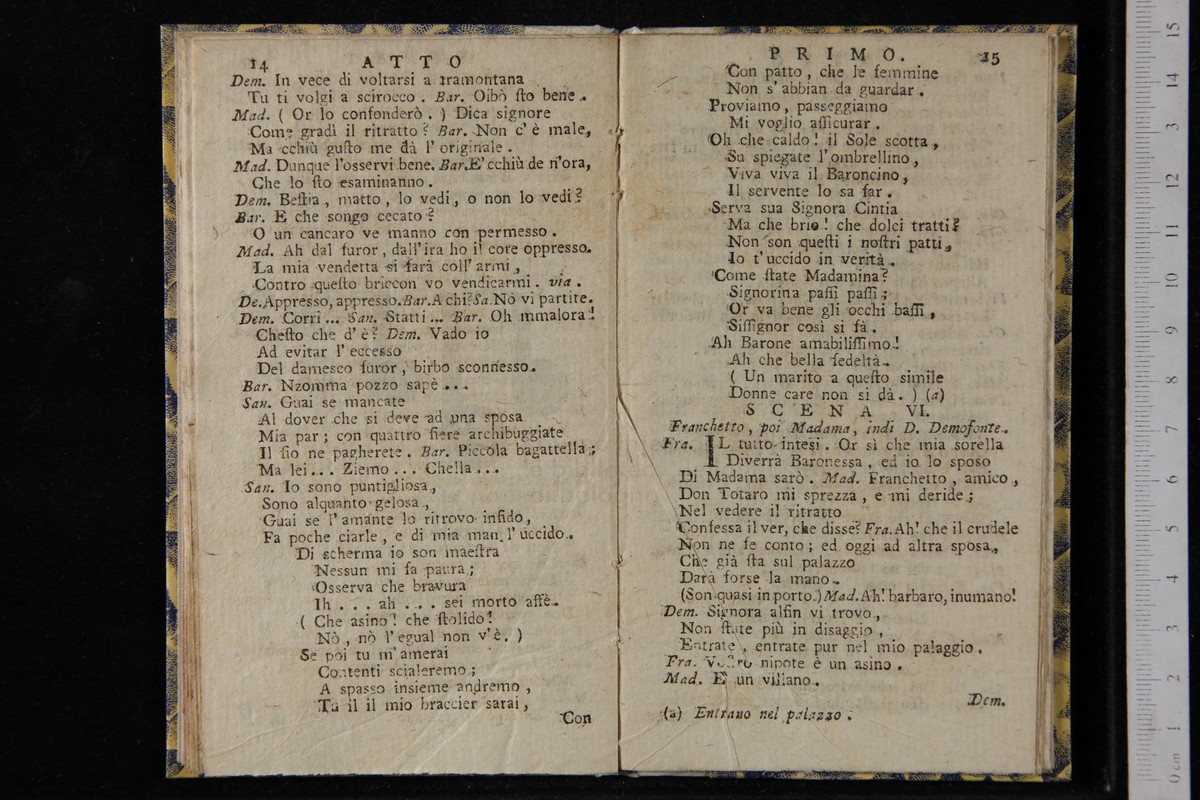 14 ATTO
Dem. In vece di voltarsi a tramontana
Tu ti volgi a scirocco. Bar. Oibò ſto bene.
Mad. ( Or lo confonderò. ) Dica signore
Come gradì il ritratto? Bar. Non c'è male,
Ma cchiù guſto me dà l'originale.
Mad. Dunque l'osservi bene. Bar. E' cchiù de n'ora,
Che lo ſto esaminanno.
Dem. Beſtia, matto, lo vedi, o non lo vedi?
Bar. E che songo cecato?
O un cancaro ve manno con permesso.
Mad. Ah dal furor, dall'ira ho il core oppresso.
La mia vendetta si farà coll'armi,
Contro queſto briccon vo vendicarmi. via.
De. Appresso, appresso. Bar. A chi? Sa. Nò vi partite.
Dem. Corri... San. Statti... Bar. Oh mmalora!
Cheſto che d'è? Dem. Vado io
Ad evitar l'eccesso
Del damesco furor, birbo sconnesso.
Bar. Nzomma pozzo sapè...
San. Guai se mancate
Al dover che si deve ad una sposa
Mia par; con quattro fiere archibuggiate
Il fio ne pagherete. Bar. Piccola bagattella;
Ma lei... Ziemo... Chella...
San. Io sono puntigliosa,
Sono alquanto gelosa,
Guai se l'amante lo ritrovo infido,
Fa poche ciarle, e di mia man l'uccido.
Di scherma io son maeſtra
Nessun mi fa paura;
Osserva che bravura
Ih... ah... sei morto affè.
( Che asino! che ſtolido!
Nò, nò l'egual non v'è. )
Se poi tu m'amerai
Contenti scialeremo;
A spasso insieme andremo,
Tu il il mio braccier sarai,
Con
PRIMO. 15
Con patto, che le femmine
Non s'abbian da guardar.
Proviamo, passeggiamo
Mi voglio aſſicurar.
Oh che caldo! il Sole scotta,
Su spiegate l'ombrellino,
Viva viva il Baroncino,
Il servente lo sa far.
Serva sua Signora Cintia
Ma che brio! che dolci tratti?
Non son queſti i noſtri patti,
Io t'uccido in verità.
Come ſtate Madamina?
Signorina paſſi paſſi;
Or va bene gli occhi baſſi,
Siſſignor così si fà.
Ah Barone amabiliſſimo!
Ah che bella fedeltà.
( Un marito a queſto simile
Donne care non si dà. ) (a)
SCENA VI.
Franchetto, poi Madama, indi D. Demofonte.
Fra. IL tutto intesi. Or sì che mia sorella
Diverrà Baronessa, ed io lo sposo
Di Madama sarò. Mad. Franchetto, amico,
Don Totaro mi sprezza, e mi deride;
Nel vedere il ritratto
Confessa il ver, che disse? Fra. Ah! che il crudele
Non ne fe conto; ed oggi ad altra sposa,
Che già ſta sul palazzo
Darà forse la mano.
(Son quasi in porto.) Mad. Ah! barbaro, inumano!
Dem. Signora alfin vi trovo,
Non ſtate più in disaggio,
Entrate, entrate pur nel mio palaggio.
Fra. Voſtro nipote è un asino.
Mad. E' un villano.
Dem.
(a) Entrano nel palazzo.